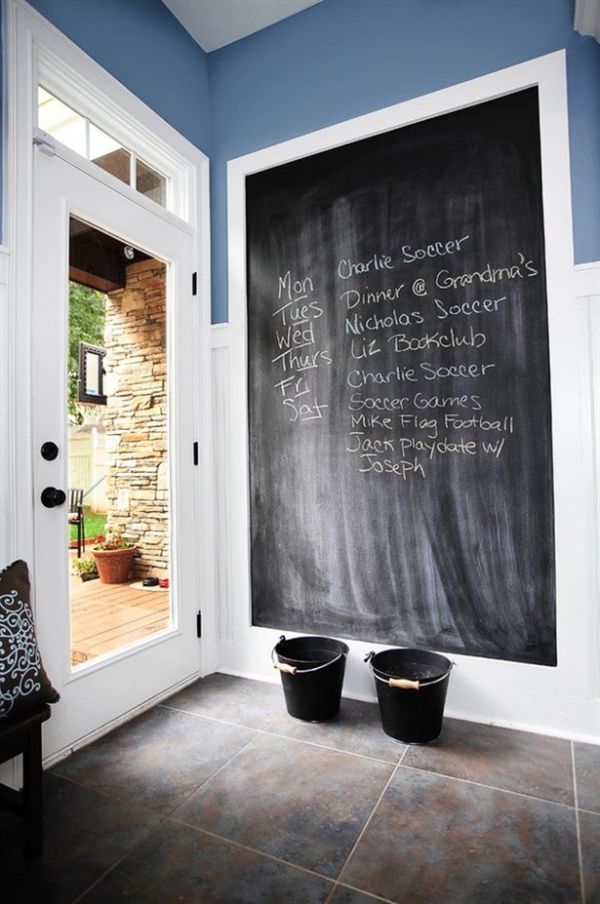 Mon Charlie Soccer
Tues Dinner @ Grandma's
Wed Nicholas Soccer
Thurs Liz Bookclub
Fri Charlie Soccer
Sat Soccer Games
Mike Flag Football
Jack playdate w/
Joseph